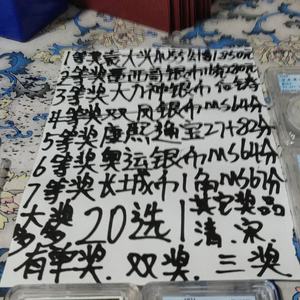 1等奖最大头AU55公博1350元
2等奖
3等奖大力神银币
4等奖双凤银币MS64分
5等奖康熙通宝27+82分
6等奖奥运银币MS64分
7等奖长城币1角MS67分
大奖
多多20选1
其它奖品
清.宋
有单奖.双奖.三奖